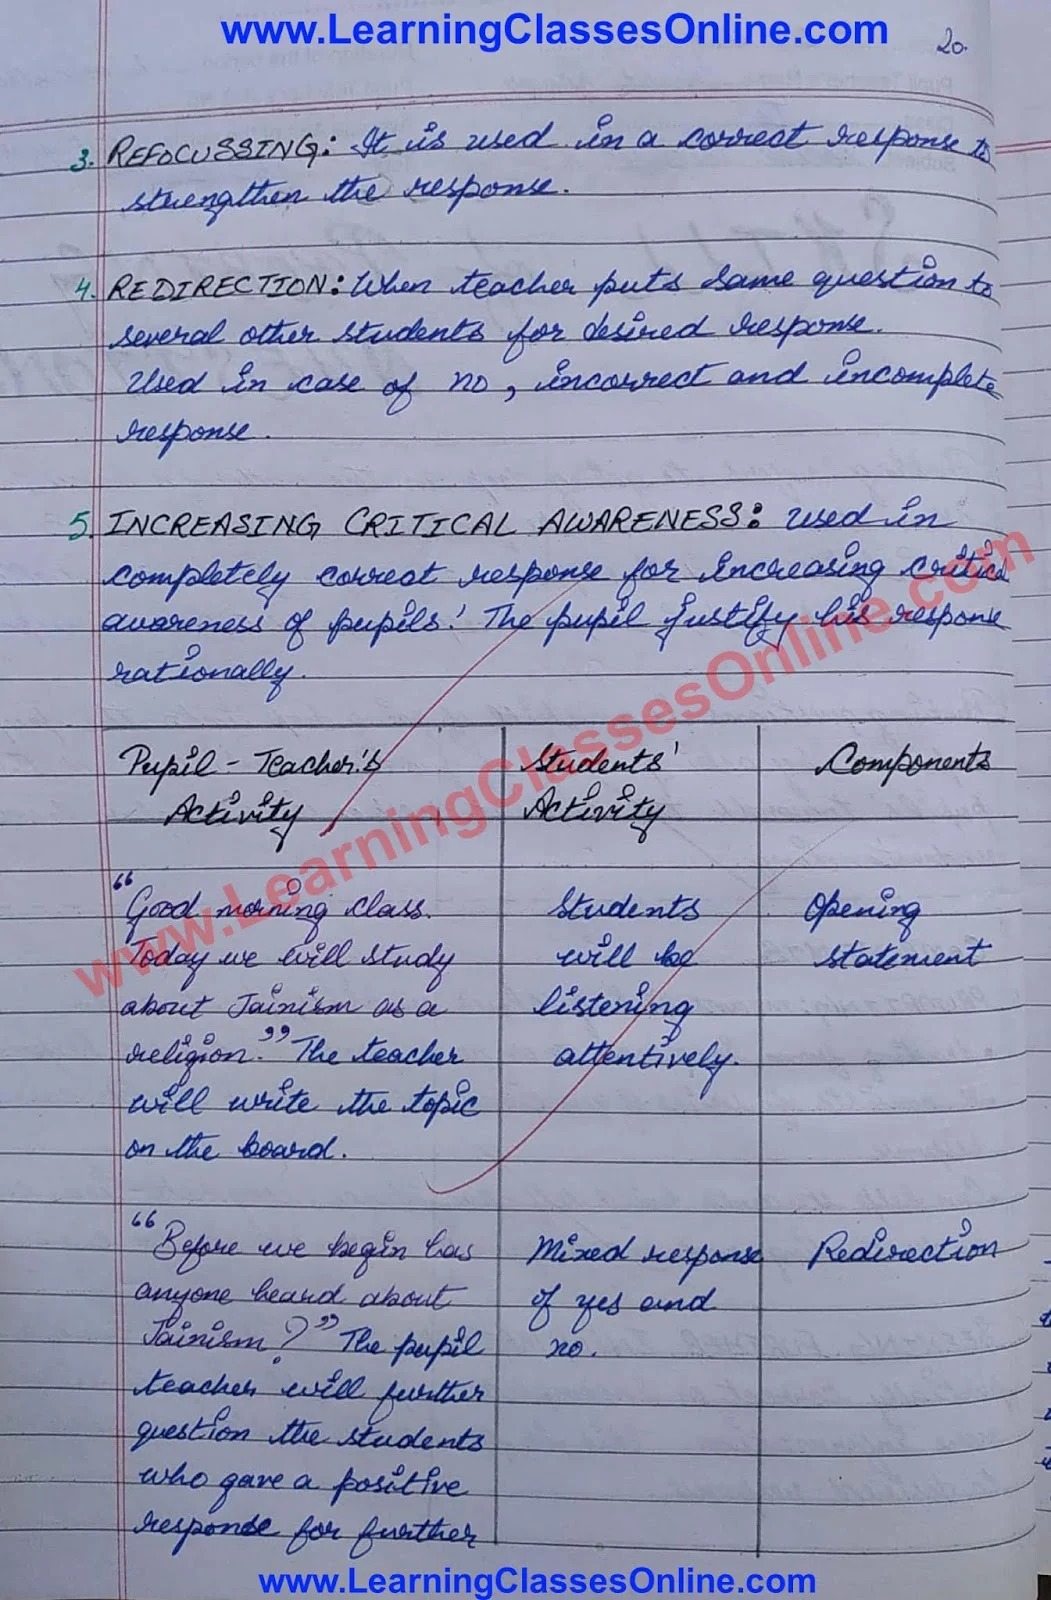 www.LearningClassesOnline.com
20.
3. REFOCUSSING: It is used in a correct response to
strengthen the response.
4. REDIRECTION: When teacher puts same question to
several other students for desired response.
Used in case of no, incorrect and incomplete
response.
5. INCREASING CRITICAL AWARENESS: used in
completely correct response for increasing critical
awareness of pupils! The pupil justify his response
rationally.
Pupil - Teacher's
Activity
"Good morning class.
Today we will study
about Jainism as a
religion." The teacher
will write the topic
on the board.
"Before we begin has
anyone heard about
Jainism?" The pupil
teacher will further
question the students
who gave a positive
response for further
Students'
Activity
Students
will be
listening
attentively.
Mixed response
of yes and
no.
Components
Opening
statement
Redirection
www.LearningClassesOnline.com
www.LearningClassesOnline.com